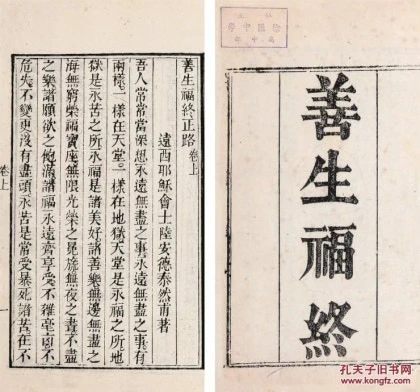 善生福終
善生福終正路 卷上
遠西耶穌會士陸安德泰然甫著
吾人常常當深想永遠無盡之事永遠無盡之事有
兩樣一樣在天堂一樣在地獄天堂是永福之所地
獄是永苦之所永福是諸美好諸善樂無邊之
海無窮榮福寶座無限光榮之冕旒無夜之晝不盡
之樂諸願欲之飽滿諸福永遠齊享受不雜毫不
危失不變更沒有盡頭永苦是常受暴死諸苦在不
卷上
孔夫子旧书网
www.kongfz.com